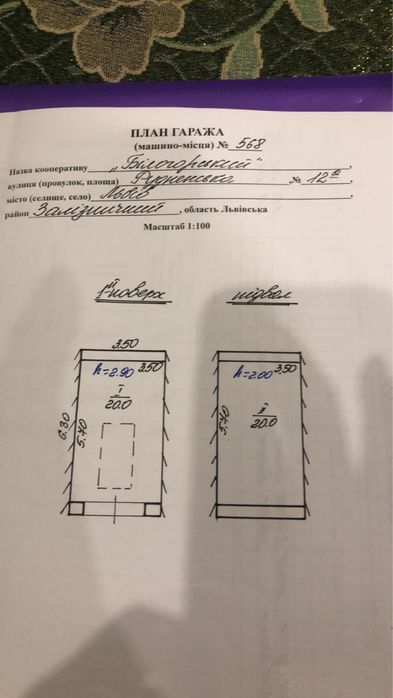 ПЛАН ГАРАЖА
(машино-місця) № 568
Назва кооперативу "Білогорський",
вулиця (провулок, площа) Рудненська № 12а,
місто (селище, село) Львів,
район Залізничний, область Львівська
Масштаб 1:100
1й поверх підвал
3.50
h=2.90 3.50 h=2.00 3.50
I 20.0
2 20.0
6.30 5.70 5.70